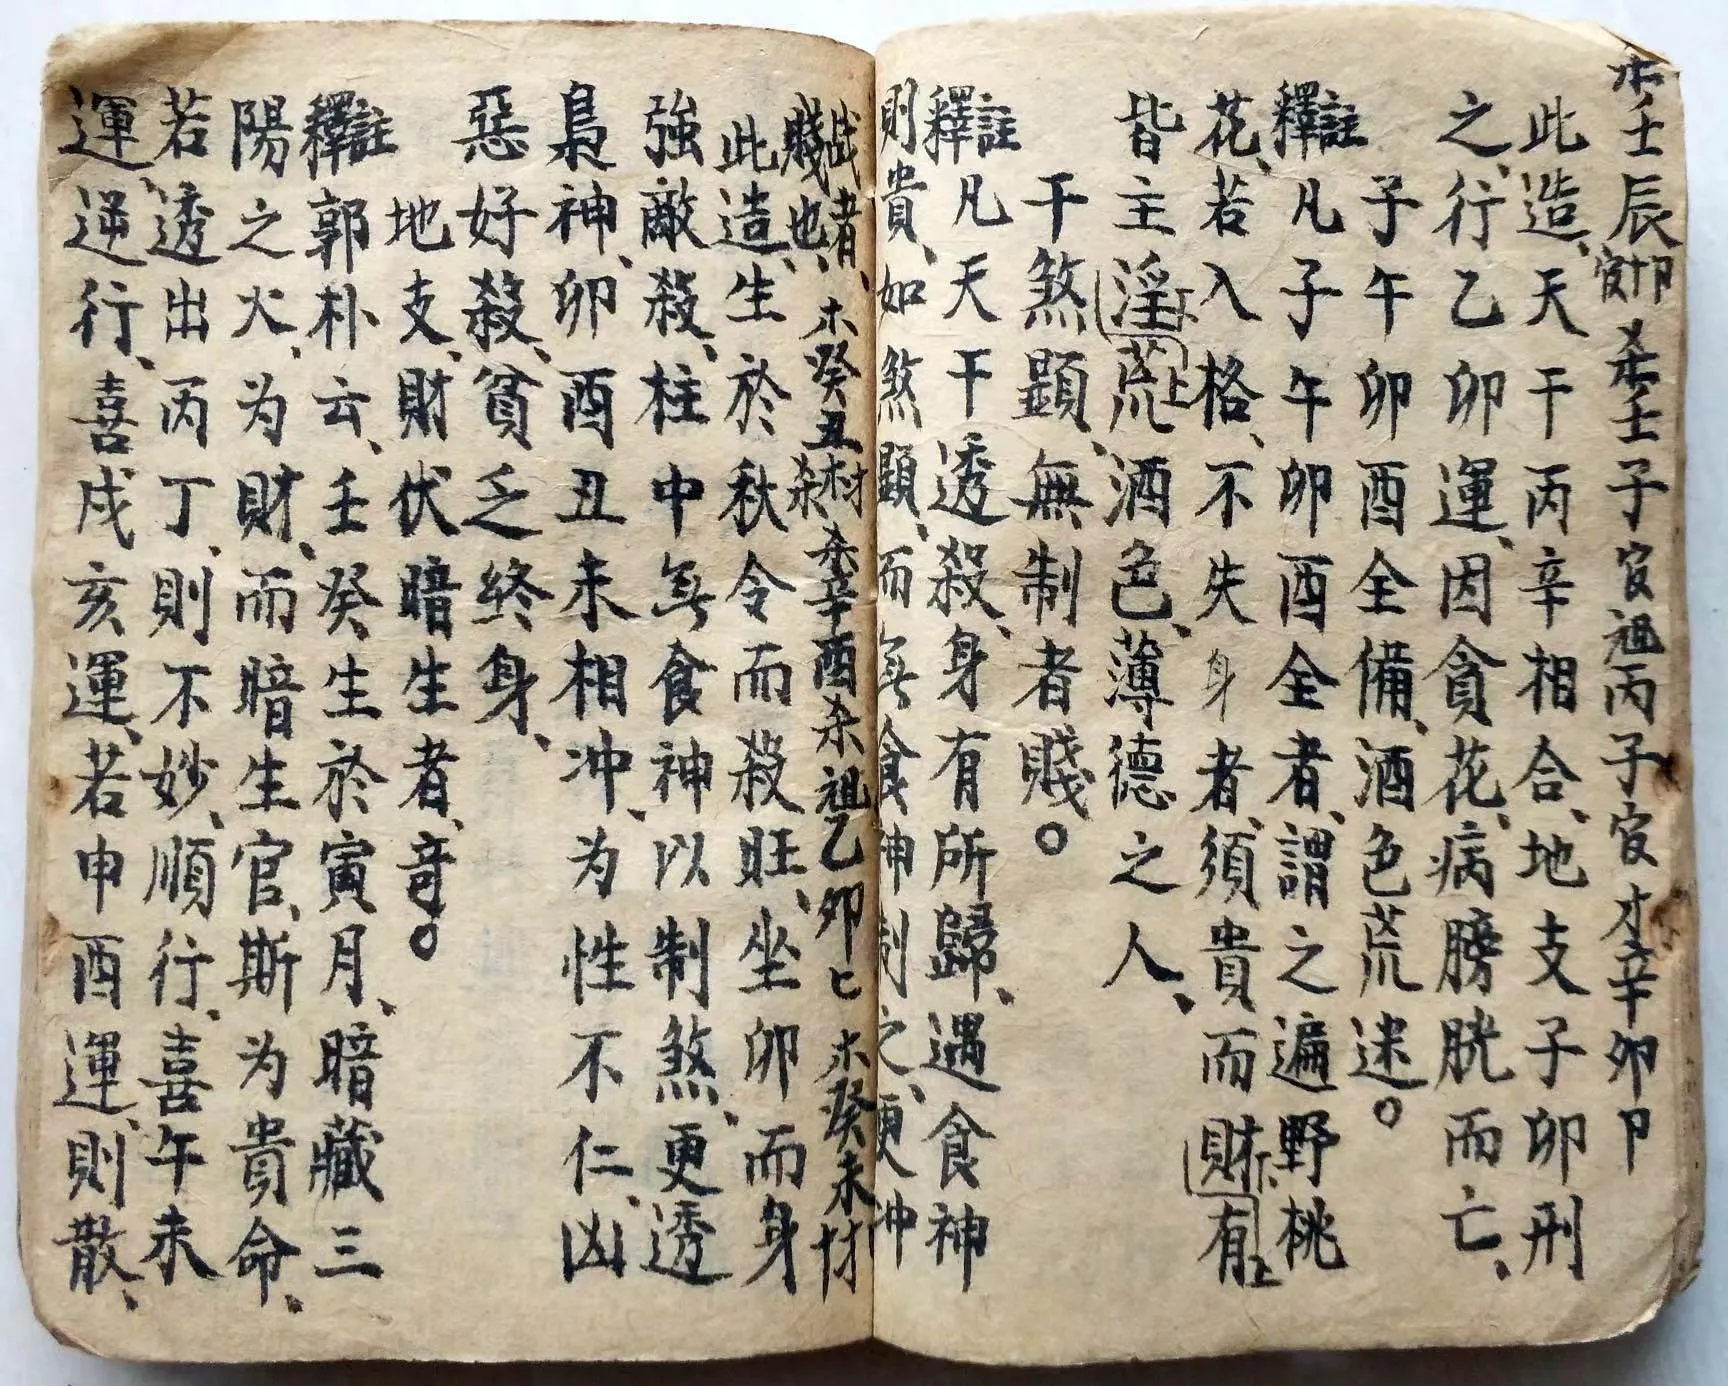 木壬辰官印杀壬子官祖丙子官才辛卯卩
此造、天干丙辛相合、地支子卯刑
之、行乙卯運、因貪花、病膀胱而亡、
子午卯酉全備、酒色荒迷。
釋註凡子午卯酉全者、謂之遍野桃
花、若入格、不失身者、須貴而財有
皆主淫荒、酒色、薄德之人、
干煞顯、無制者賤。
釋註凡天干透殺、身有所歸、遇食神
則貴、如煞顯、而無食神制之、更冲
战者、賤也、木癸丑才杀杀辛酉杀祖乙卯匕木癸未才
此造、生於秋令而殺旺、坐卯而身
強敵殺、柱中無食神以制煞、更透
梟神、卯酉丑未相冲、为性不仁、凶
惡好殺、貧乏終身、
地支、財伏暗生者、奇。
釋註郭朴云、壬癸生於寅月、暗藏三
陽之火、为財、而暗生官、斯为貴命、
若透出丙丁、則不妙、順行、喜午未
運、逆行、喜戌亥運、若申酉運、則散、